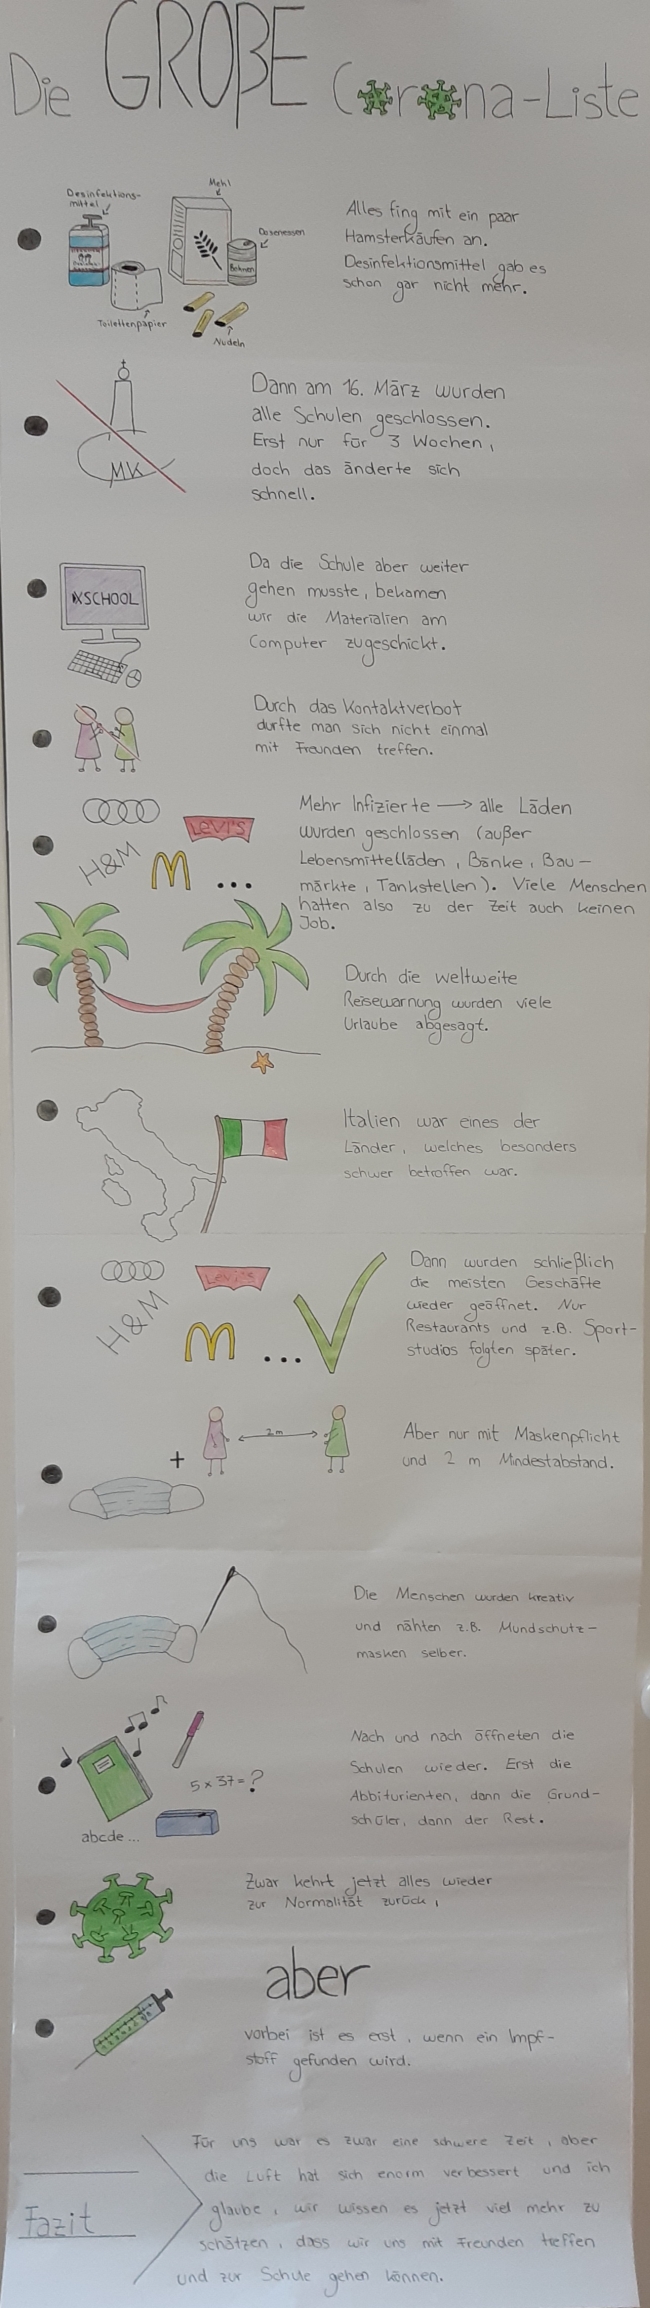 Die GROßE Corona-Liste
Desinfektions-
mittel
Mehl
Dosenessen
Bohnen
Toilettenpapier
Nudeln
Alles fing mit ein paar
Hamsterkäufen an.
Desinfektionsmittel gab es
schon gar nicht mehr.
MK
Dann am 16. März wurden
alle Schulen geschlossen.
Erst nur für 3 Wochen,
doch das änderte sich
schnell.
XSCHOOL
Da die Schule aber weiter
gehen musste, bekamen
wir die Materialien am
Computer zugeschickt.
Durch das Kontaktverbot
durfte man sich nicht einmal
mit Freunden treffen.
LEVI'S
H&M
M ...
Mehr Infizierte → alle Läden
wurden geschlossen (außer
Lebensmittelläden, Bänke, Bau-
märkte, Tankstellen). Viele Menschen
hatten also zu der Zeit auch keinen
Job.
Durch die weltweite
Reisewarnung wurden viele
Urlaube abgesagt.
Italien war eines der
Länder, welches besonders
schwer betroffen war.
Levi's
H&M
M ...
Dann wurden schließlich
die meisten Geschäfte
wieder geöffnet. Nur
Restaurants und z.B. Sport-
studios folgten später.
2m
+
Aber nur mit Maskenpflicht
und 2 m Mindestabstand.
Die Menschen wurden kreativ
und nähten z.B. Mundschutz-
masken selber.
5 x 37 = ?
abcde ...
Nach und nach öffneten die
Schulen wieder. Erst die
Abbiturienten, dann die Grund-
schüler, dann der Rest.
Zwar kehrt jetzt alles wieder
zur Normalität zurück,
aber
vorbei ist es erst, wenn ein Impf-
stoff gefunden wird.
Fazit
Für uns war es zwar eine schwere Zeit, aber
die Luft hat sich enorm verbessert und ich
glaube, wir wissen es jetzt viel mehr zu
schätzen, dass wir uns mit Freunden treffen
und zur Schule gehen können.